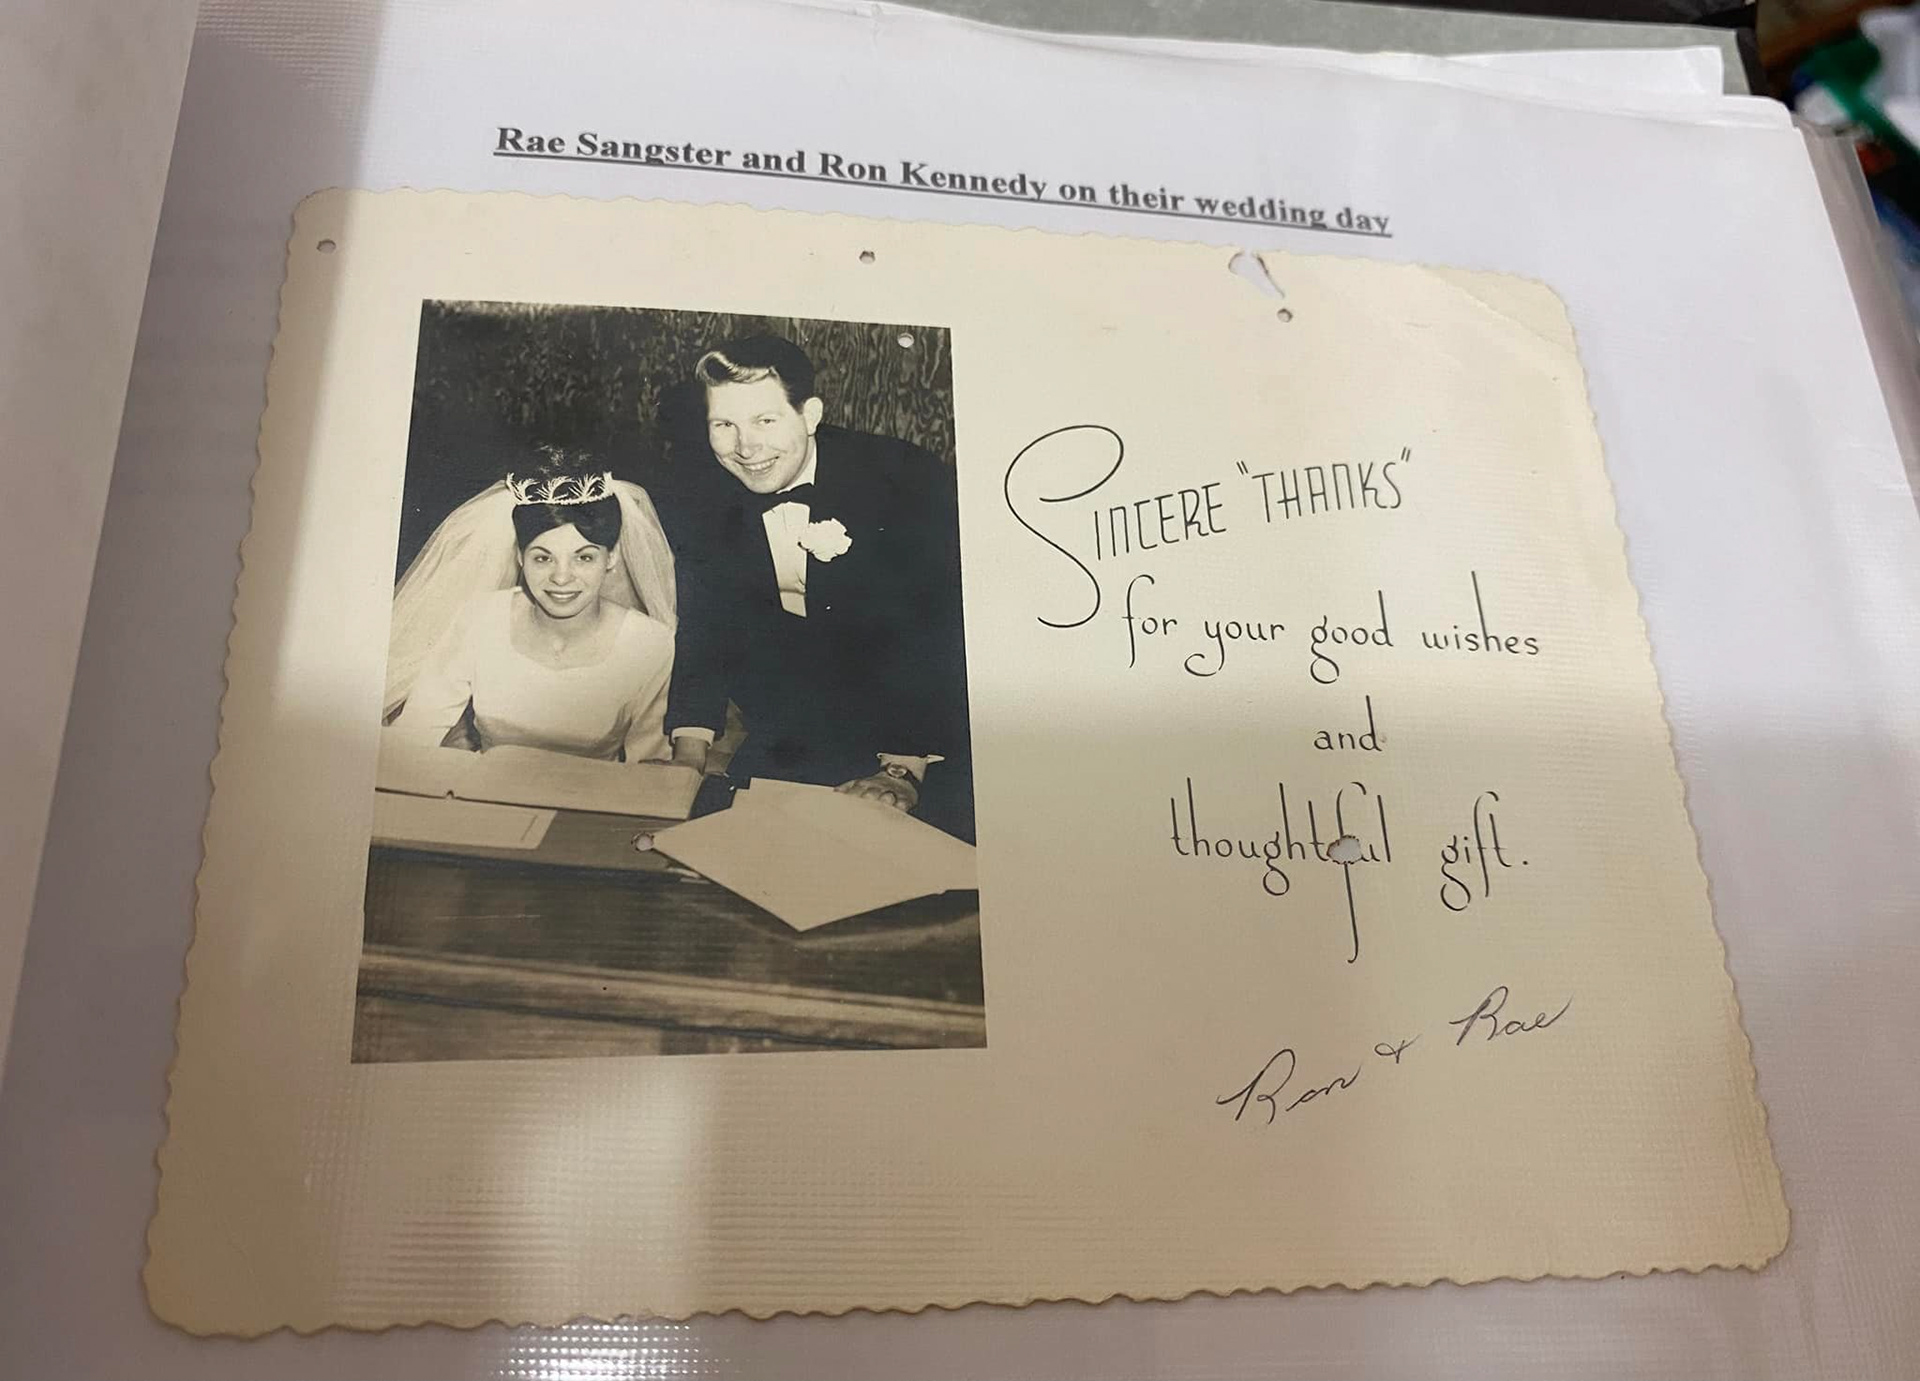 Rae Sangster and Ron Kennedy on their wedding day
SINCERE "THANKS"
for your good wishes
and
thoughtful gift.
Ron & Rae